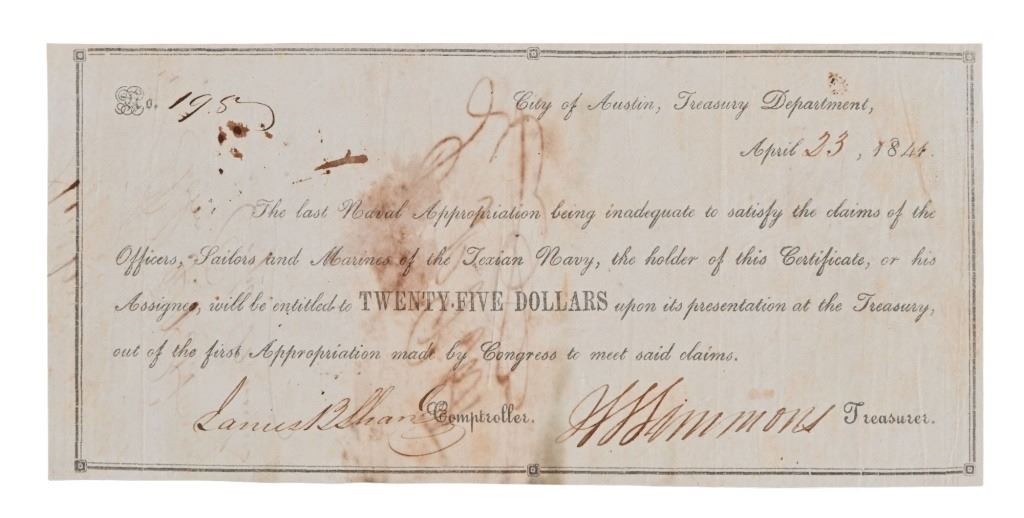 No. 195
City of Austin, Treasury Department,
April 23, 1841.
The last Naval Appropriation being inadequate to satisfy the claims of the
Officers, Sailors and Marines of the Texian Navy, the holder of this Certificate, or his
Assignee, will be entitled to TWENTY-FIVE DOLLARS upon its presentation at the Treasury,
out of the first Appropriation made by Congress to meet said claims.
James B Shaw Comptroller. Simmons Treasurer.